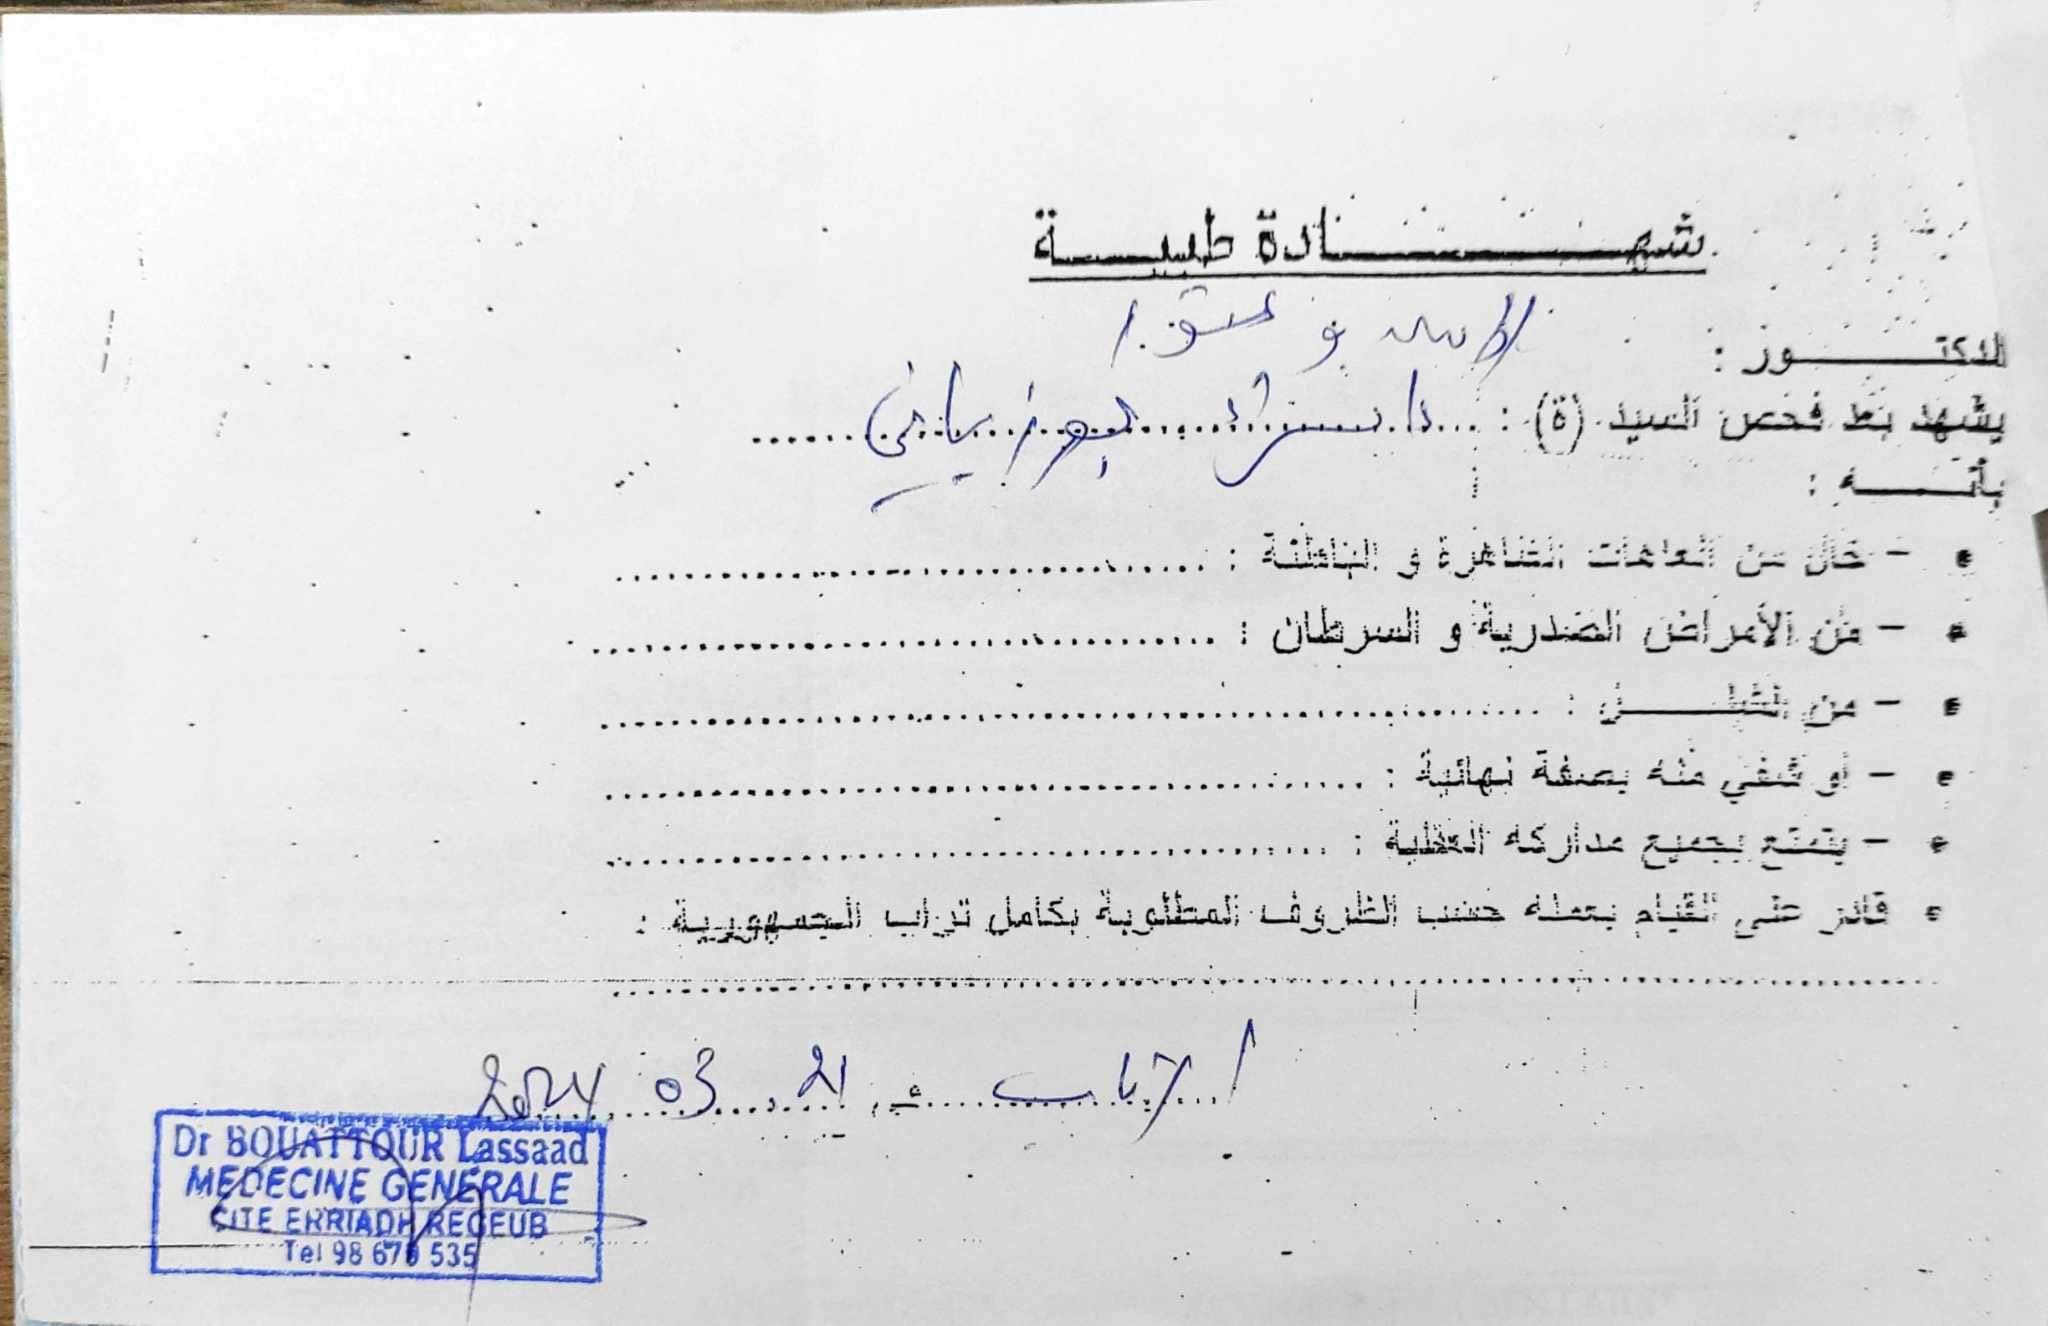 شهــــادة طبيـــة
الدكتـــور :
يشهد بعد فحص السيد (ة) :
بأنـــه :
• - خال من العاهات الظاهرة و الباطنة :
• - من الأمراض الصدرية و السرطان :
• - من الشلـــل :
• - أو شفي منه بصفة نهائية :
• - يتمتع بجميع مداركه العقلية :
• قادر على القيام بعمله حسب الظروف المطلوبة بكامل تراب الجمهورية :
21 03 2024
Dr BOUATTOUR Lassaad
MEDECINE GENERALE
CITE ERRIADH REGEUB
Tel 98 678 535